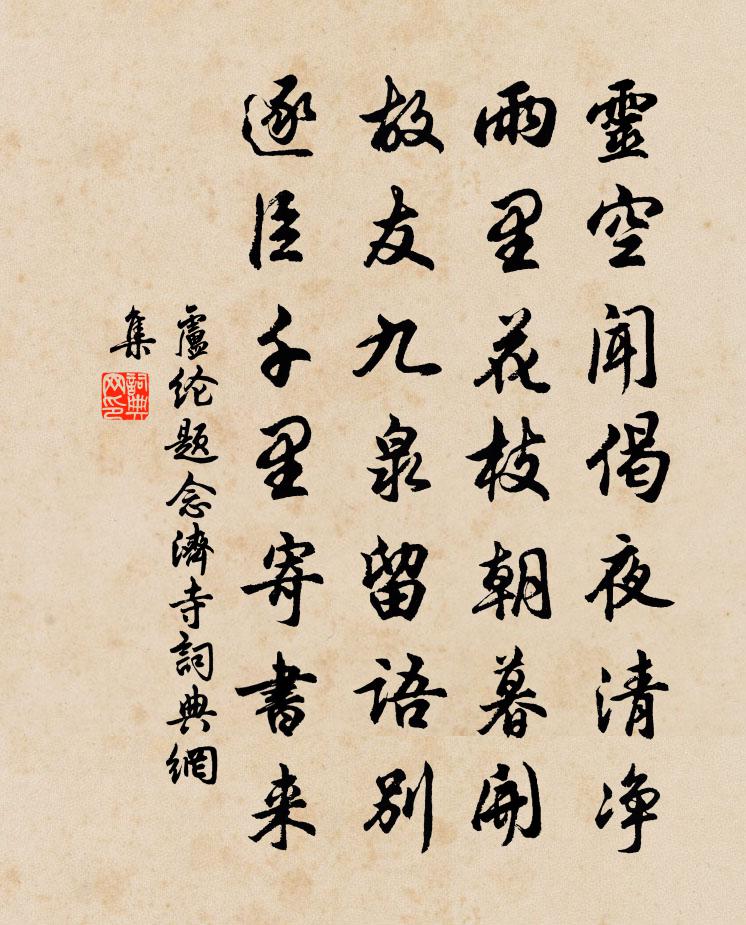 靈空聞偈夜清净
雨里花枝朝暮開
故友九泉留語别
逐臣千里寄書来
盧纶题念濟寺詞典網
集
詞典网印